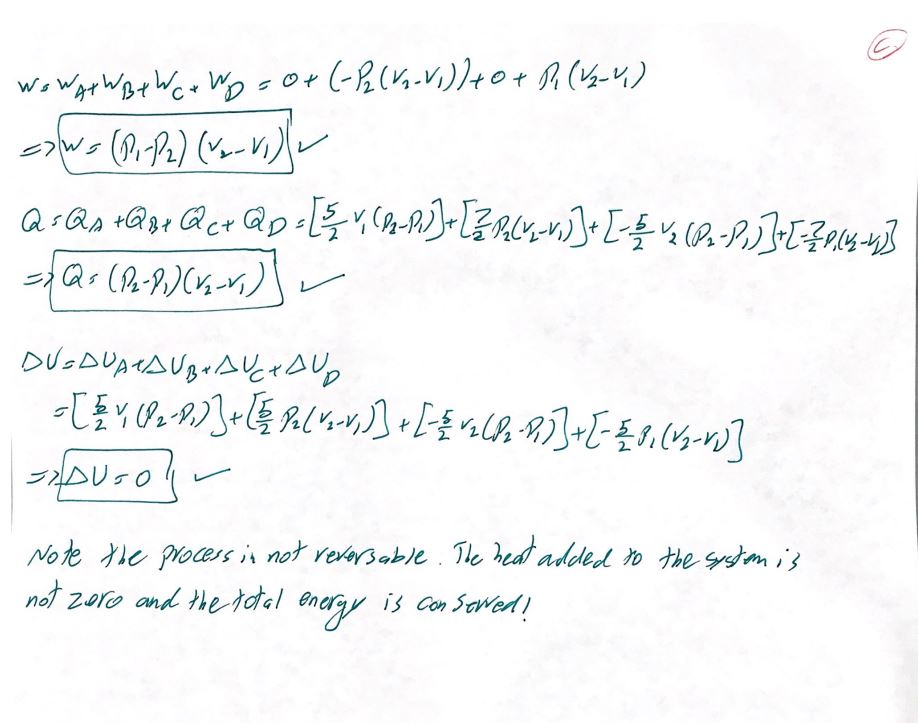 C
W = W_A + W_B + W_C + W_D = 0 + (-P₂(V₂-V₁)) + 0 + P₁(V₂-V₁)
=> W = (P₁-P₂)(V₂-V₁) ✓
Q = Q_A + Q_B + Q_C + Q_D = [5/2 V₁(P₂-P₁)] + [7/2 P₂(V₂-V₁)] + [-5/2 V₂(P₂-P₁)] + [-7/2 P₁(V₂-V₁)]
=> Q = (P₂-P₁)(V₂-V₁) ✓
ΔU = ΔU_A + ΔU_B + ΔU_C + ΔU_D
= [5/2 V₁(P₂-P₁)] + [5/2 P₂(V₂-V₁)] + [-5/2 V₂(P₂-P₁)] + [-5/2 P₁(V₂-V₁)]
=> ΔU = 0 ✓
Note the process is not reversable. The heat added to the system is
not zero and the total energy is conserved!